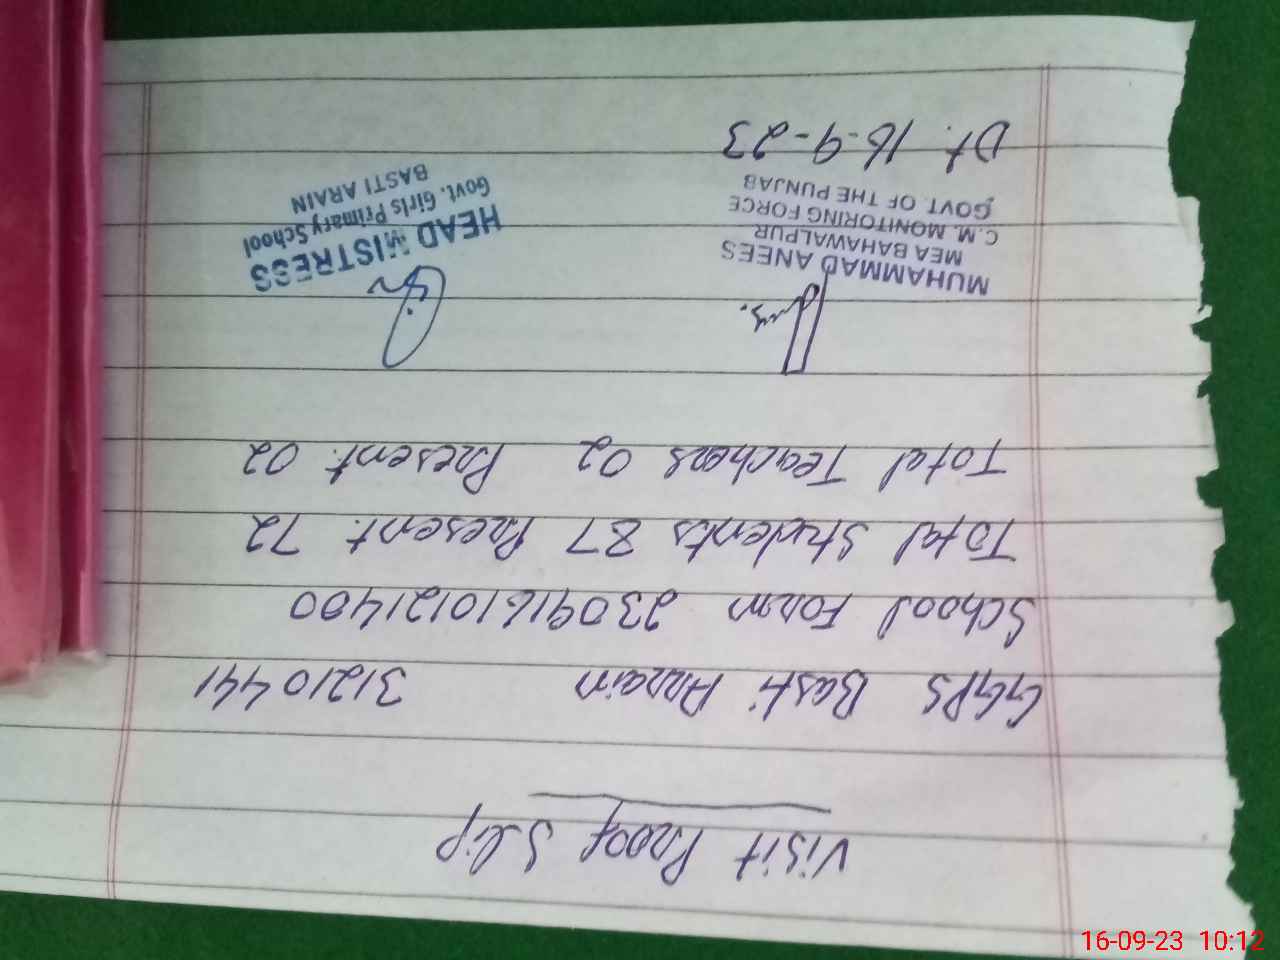 Visit Proof Slip
GGPS Basti Arrain 31210441
School Form 23091610121400
Total Students 87 Present. 72
Total Teachers 02 Present. 02
MUHAMMAD ANEES
MEA BAHAWALPUR
C.M. MONITORING FORCE
GOVT. OF THE PUNJAB
Dt. 16-9-23
HEAD MISTRESS
Govt. Girls Primary School
BASTI ARAIN
16-09-23 10:12